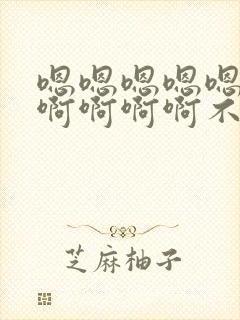 嗯嗯嗯嗯嗯
啊啊啊啊不
芝麻柚子